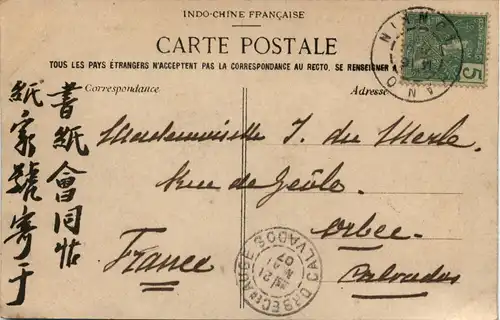 INDO-CHINE FRANÇAISE
CARTE POSTALE
TOUS LES PAYS ÉTRANGERS N'ACCEPTENT PAS LA CORRESPONDANCE AU RECTO. SE RENSEIGNER A
Correspondance
Adresse
書紙會同帖
紙家號寄于
Mademoiselle J. du Merle
Rue de Geôle.
Orbec
Calvados
France
5
ORBEC EN AUGE CALVADOS
21
07